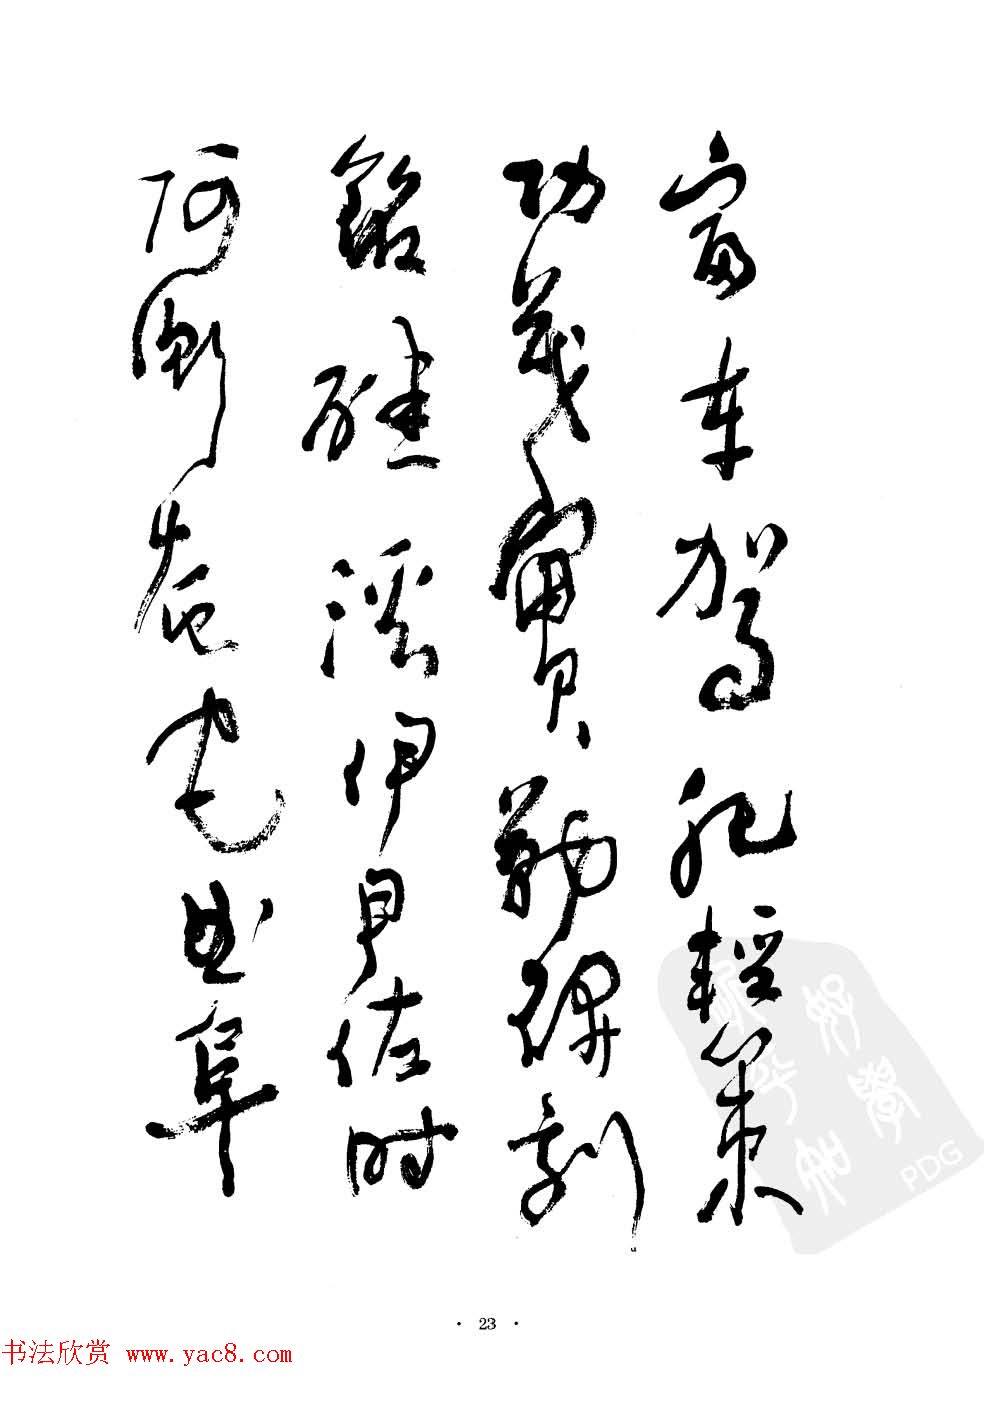 富车驾肥轻策
功茂实勒碑刻
铭磻溪伊尹佐时
阿衡奄宅曲阜
PDG
· 23 ·
书法欣赏 www.yac8.com